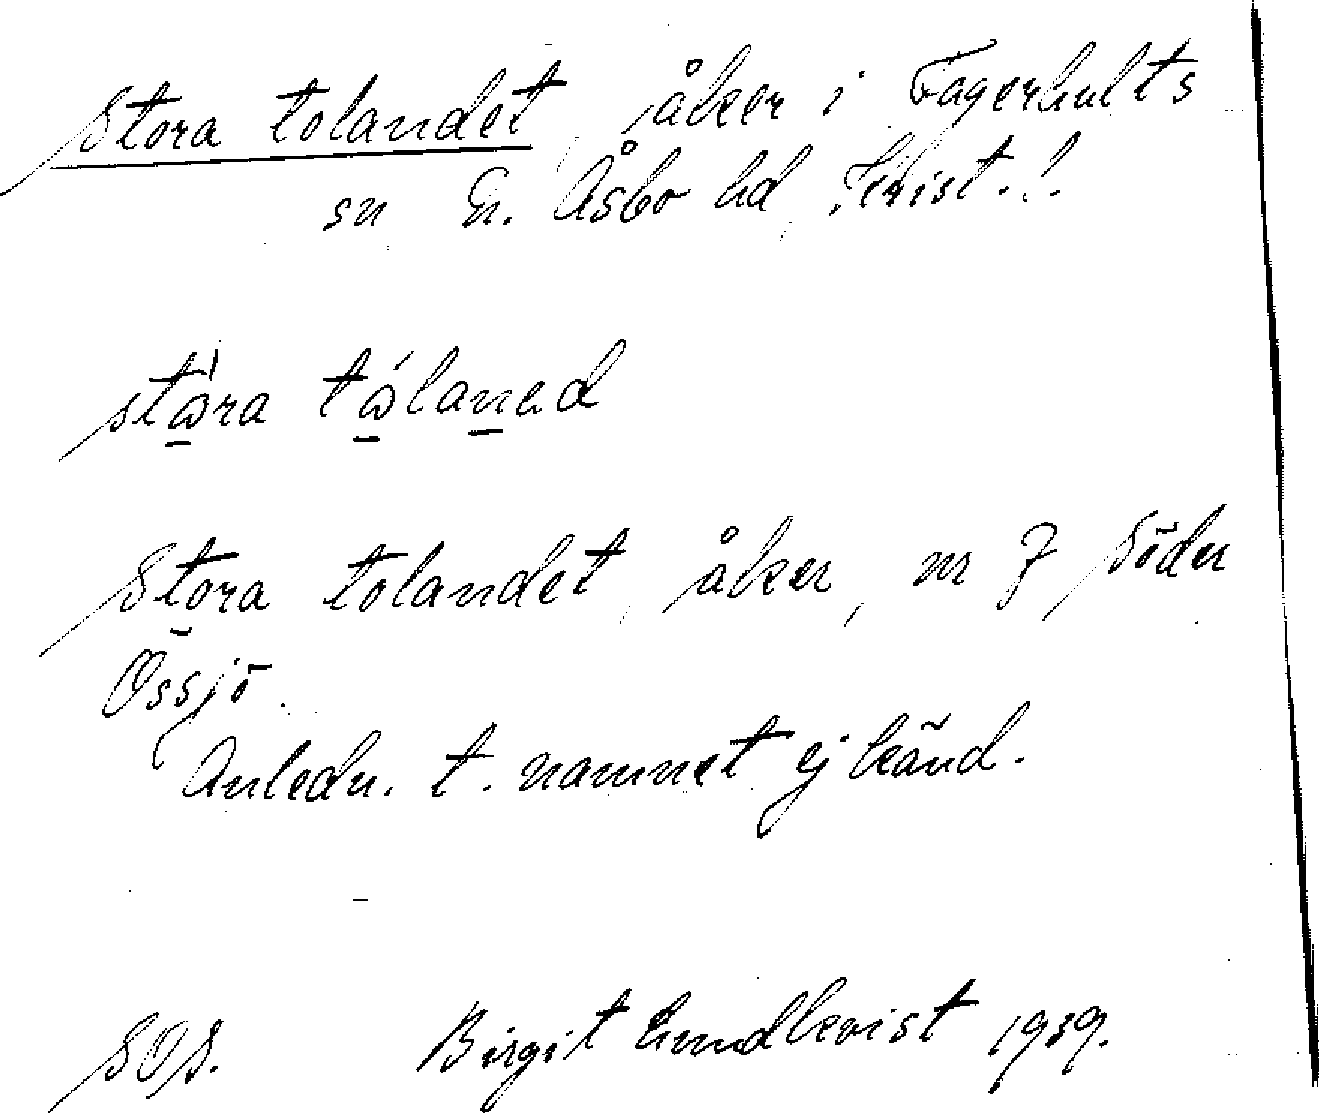 Stora tolandet, åker i Fagerhults
sn N. Åsbo hd, Krist. l.
stὼ̱ra tώ̱laṉad
Stora tolandet, åker, nr 7 Söder
Össjö.
Anledn. t. namnet ej känd.
SOS. Birgit Lundkvist 1939.